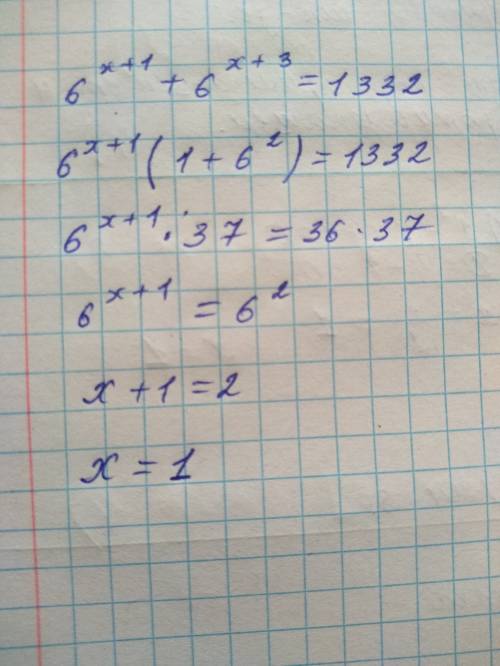 6^{x+1} + 6^{x+3} = 1332
6^{x+1} (1 + 6^2) = 1332
6^{x+1} · 37 = 36 · 37
6^{x+1} = 6^2
x + 1 = 2
x = 1